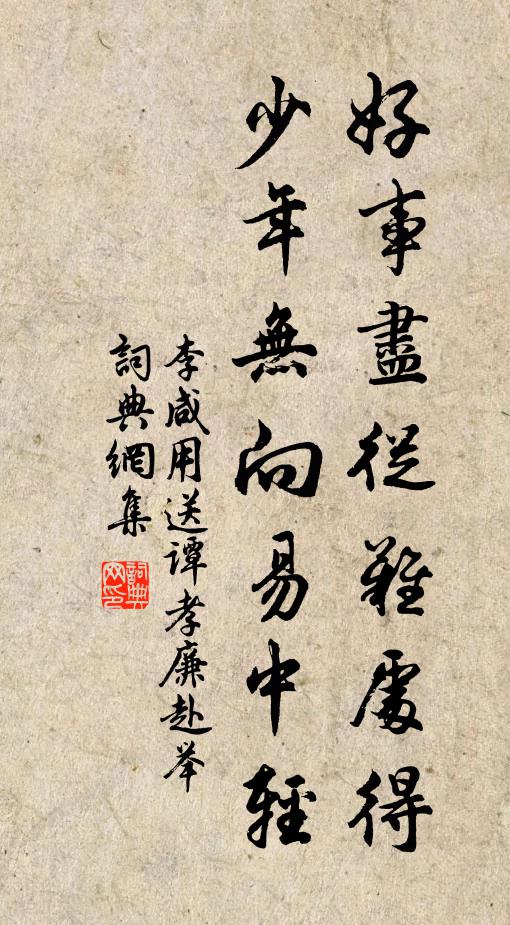 好事盡從難處得
少年無向易中輕
李咸用送谭孝廉赴举
詞典網集
詞典网印